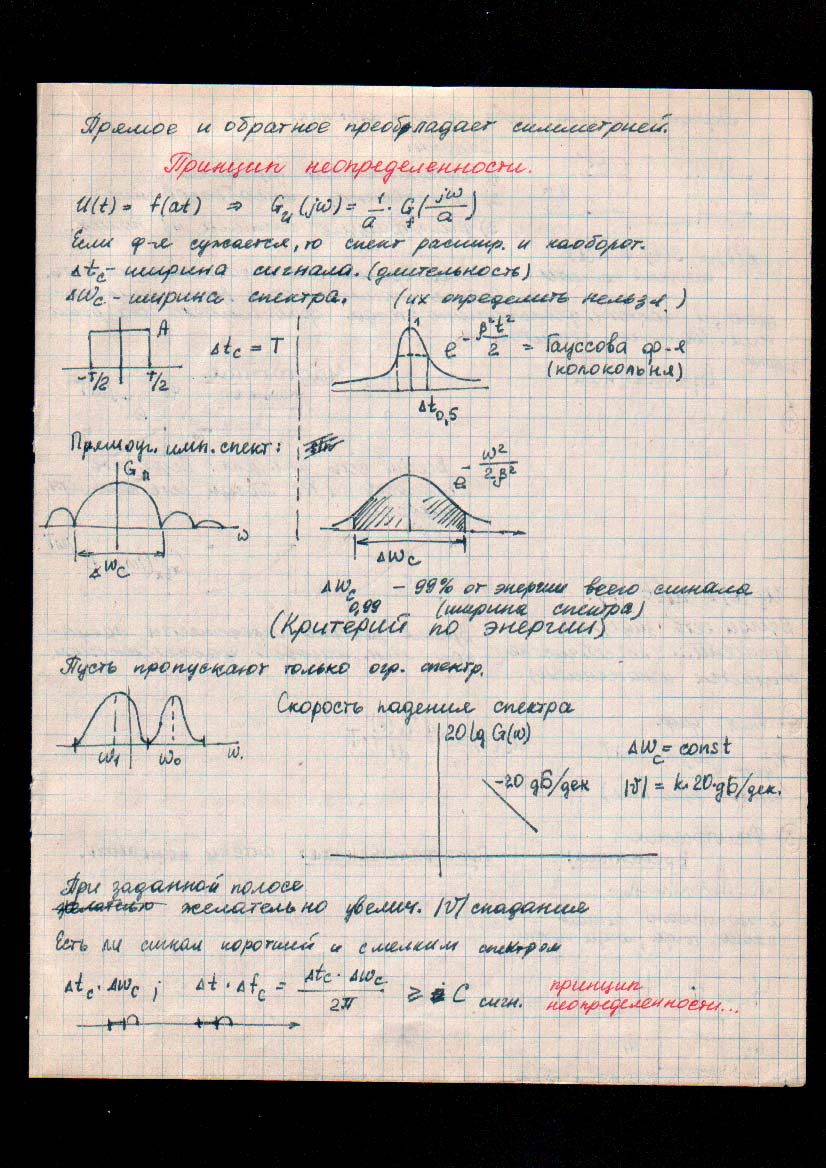 Прямое и обратное преобрладает симметрией.
Принцип неопределенности.
U(t) = f(at) ⇒ G_u(jω) = 1/a · G_f(jω/a)
Если ф-я сужается, то спект расшир. и наоборот.
Δt_c - ширина сигнала. (длительность)
Δω_c - ширина спектра. (их определить нельзя.)
A
-T/2 T/2
Δt_c = T
1
e^(-β²t²/2) = Гауссова ф-я
(колокольня)
Δt_0,5
Прямоуг. имп. спект:
G_п
ω
Δω_c
e^(-ω²/2β²)
Δω_c
Δω_c 0,99 - 99% от энергии всего сигнала
(ширина спектра)
(Критерий по энергии)
Пусть пропускают только огр. спектр.
ω_1 ω_0 ω.
Скорость падения спектра
20 lg G(ω)
-20 дБ/дек
Δω_c = const
|V| = k·20·дБ/дек.
При заданной полосе
желательно желательно увелич. |V| спадания
Есть ли сигнал коротший и с мелким спектром
Δt_c · Δω_c ; Δt · Δf_c = Δt_c · Δω_c / 2π ≥ C сигн.
принцип
неопределенности...